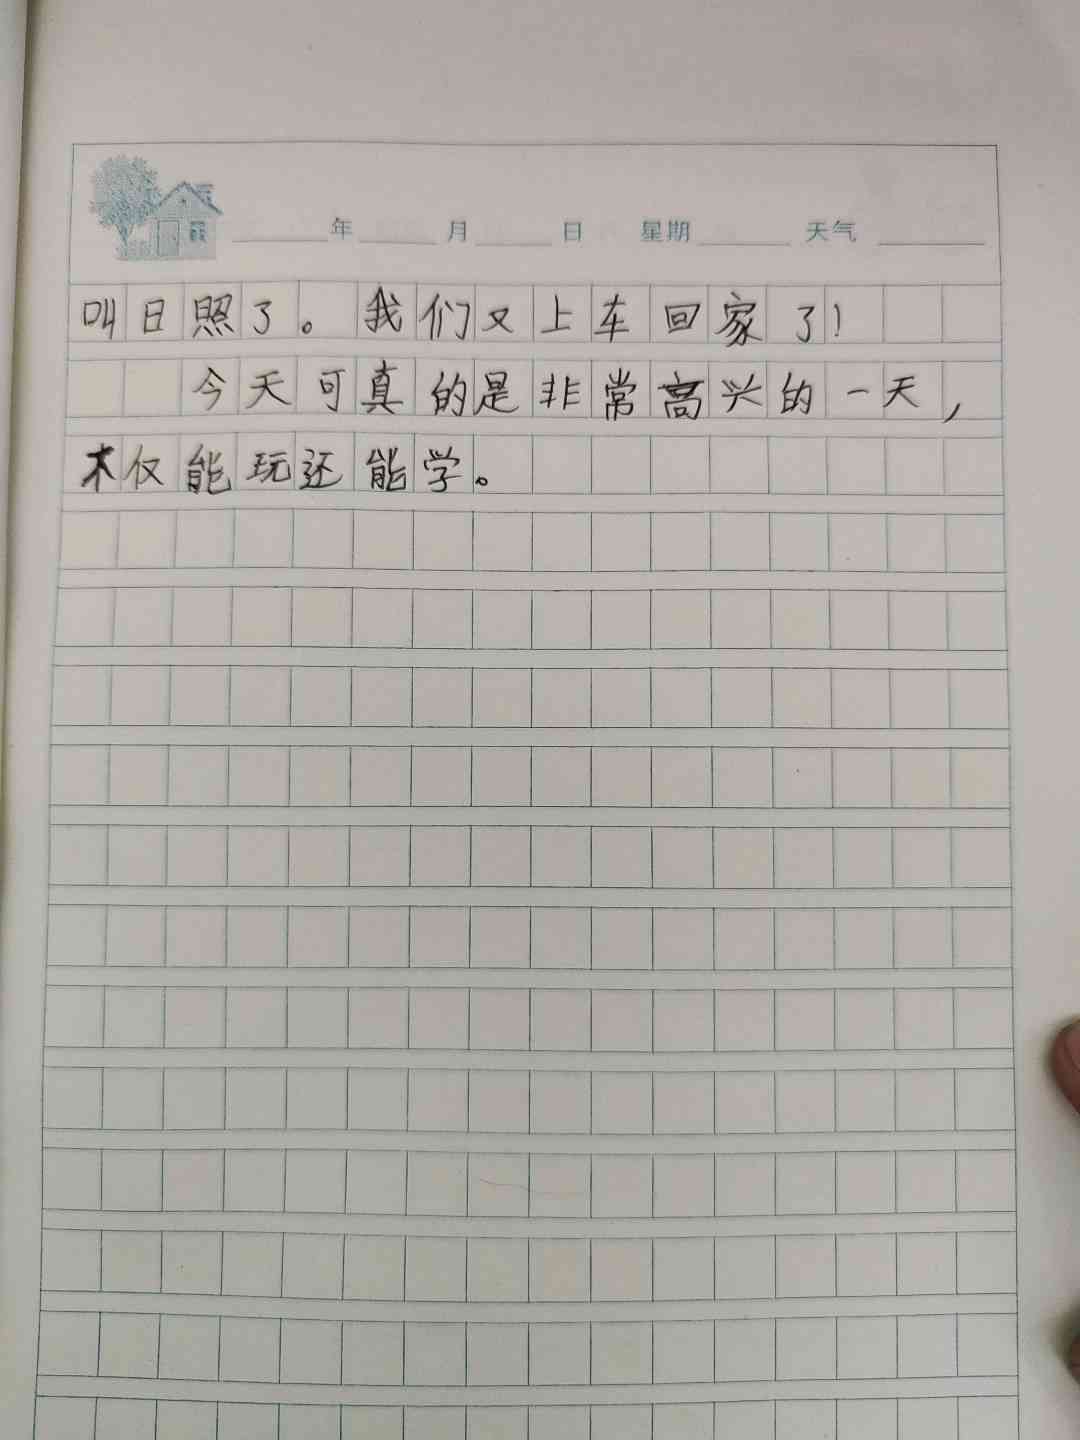 年 月 日 星期 天气
叫日照了。我们又上车回家了！
今天可真的是非常高兴的一天，
不仅能玩还能学。